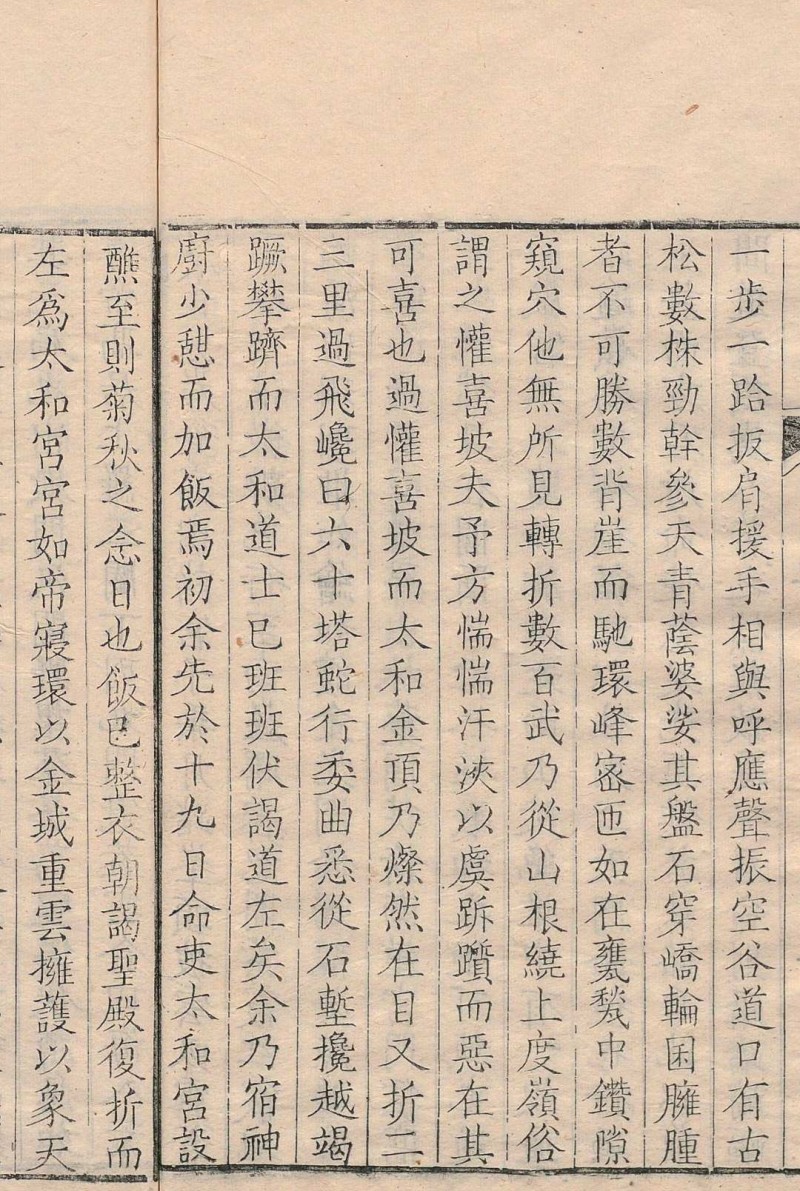 一步一跲扳肩援手相與呼應聲振空谷道口有古
松數株勁幹參天青蔭婆娑其盤石穿嶠輪囷臃腫
者不可勝數背崖而馳環峰宻匝如在甕甃中鑽隙
窺穴他無所見轉折數百武乃從山根繞上度嶺俗
謂之懽喜坡夫予方惴惴汗浹以虞跅躓而惡在其
可喜也過懽喜坡而太和金頂乃燦然在目又折二
三里過飛巉曰六十塔蛇行委曲悉從石塹攙越竭
蹶攀躋而太和道士已班班伏謁道左矣余乃宿神
廚少憇而加飯焉初余先於十九日命吏太和宮設
醮至則菊秋之念日也飯已整衣朝謁聖殿復折而
左爲太和宮宮如帝寢環以金城重雲擁護以象天